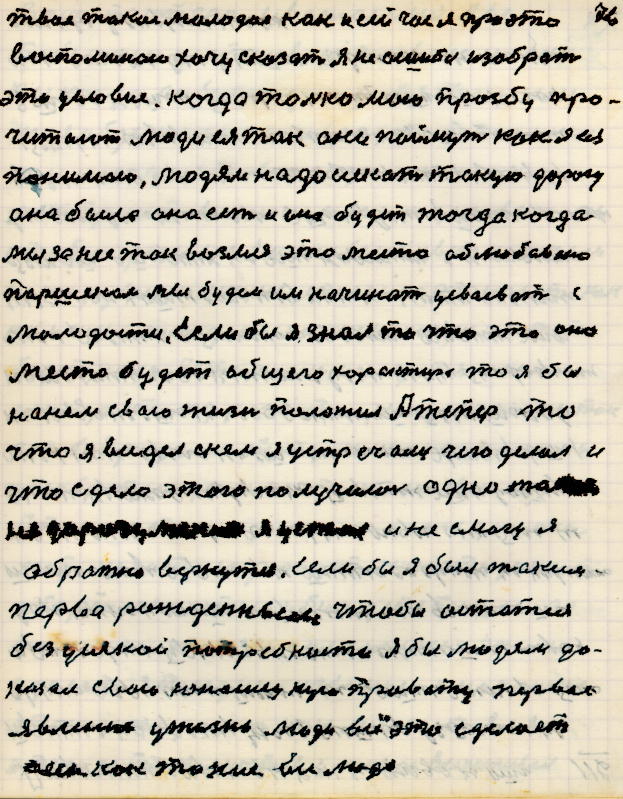 твое такое молодое как и сейчас я про это 76
воспоминаю хочу сказат я не ошибы изобрат
это условие. Когда толко мою прозбу про-
читают люди ея так они поймут как я ея
понимаю, людям надо искат такую дорогу
она была она ест и она будет тогда когда
мы за нее так возмея это место облюбавано
парешенем мы будем им начинат цеваеват с
молодости. Если бы я знал то что это оно
место будет общего характира то я бы
нанем свою жизн положил Атепер то
что я видел скем я устречалц чего делал и
что сдело этого получилос одно
и не смогу я
обратно вернутся. Если бы я был таким
перва рожденным чтобы остатся
без усякой потребности я бы людям до-
казал свою юношискую правоту первое
явление ужизнь люди всё это сделают
как то же бы люди